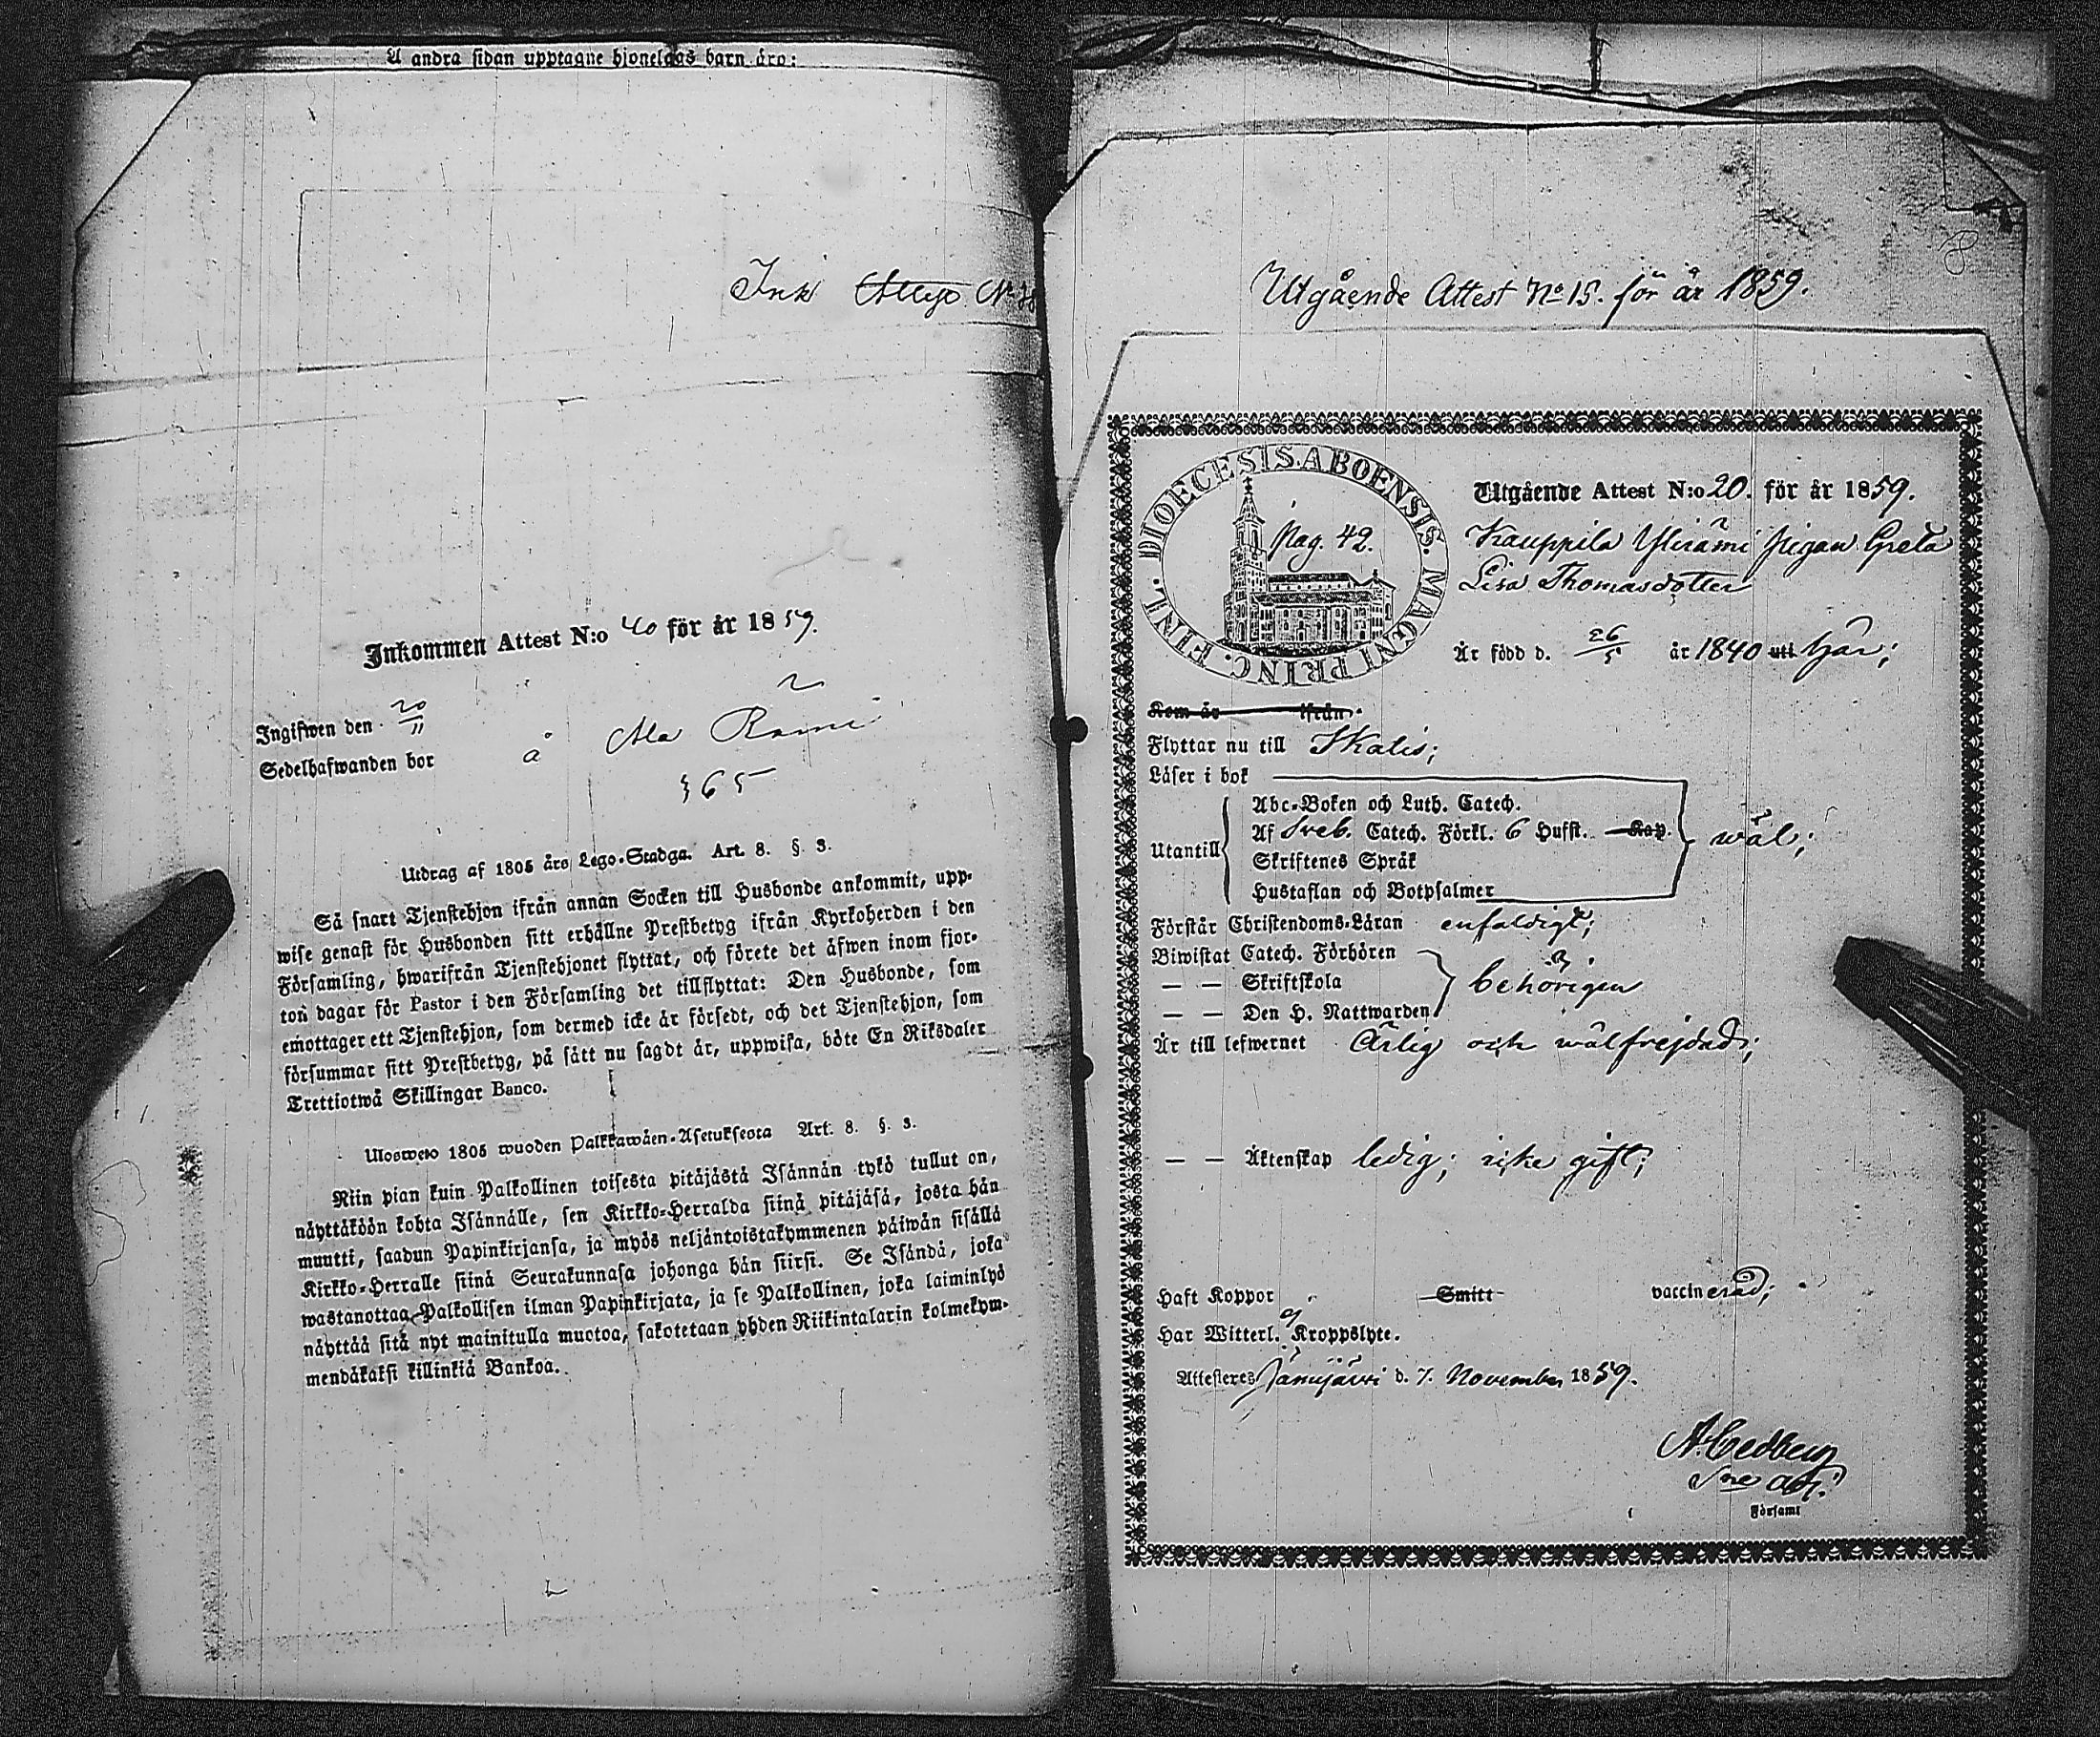 A andra sidan upptagne hjonelags barn äro:
Ink Attest No
Inkommen Attest N:o 40 för år 1859.
Ingifwen den 20/11
Sedelhafwanden bor å Ala Rami
§ 65
Utdrag af 1805 års Lego-Stadga. Art. 8. §. 3.
Så snart Tjenstehjon ifrån annan Socken till Husbonde ankommit, upp-
wise genast för Husbonden sitt erhållne Prestbetyg ifrån Kyrkoherden i den
Församling, hwarifrån Tjenstehjonet flyttat, och förete det äfwen inom fjor-
ton dagar för Pastor i den Församling det tillflyttat: Den Husbonde, som
emottager ett Tjenstehjon, som dermed icke är försedt, och det Tjenstehjon, som
försummar sitt Prestbetyg, på sätt nu sagdt är, uppwisa, böte En Riksdaler
Trettiotwå Skillingar Banco.
Ulosweto 1805 wuoden Palkkawäen-Asetuksesta Art. 8. §. 3.
Niin pian kuin Palkollinen toisesta pitäjästä Isännän tykö tullut on,
näyttäköön kohta Isännälle, sen Kirkko-Herralda siinä pitäjäsä, josta hän
muutti, saadun Papinkirjansa, ja myös neljäntoistakymmenen päiwän sisällä
Kirkko-Herralle siinä Seurakunnasa johonga hän siirsi. Se Isändä, joka
wastanottaa Palkollisen ilman Papinkirjata, ja se Palkollinen, joka laiminlyö
näyttää sitä nyt mainitulla muotoa, sakotetaan yhden Riikintalarin kolmekym-
mendäkaksi killinkiä Bankoa.
Utgående Attest No 15. för år 1859.
8
DIOECESIS ABOENSIS. MAGNI PRINC. FINL.
Pag. 42.
Utgående Attest N:o 20. för år 1859.
Kauppila Ylirämi pigan Greta
Lisa Thomasdotter
Är född d. 26/5 år 1840 utt här;
Kom år ifrån
Flyttar nu till Ikalis;
Läser i bok
Utantill
Abc-Boken och Luth. Catech.
Af Sveb. Catech. Förkl. 6 Hufst. Kap.
Skriftenes Språk
Hustaflan och Botpsalmer
wäl;
Förstår Christendoms-Läran enfaldigt;
Biwistat Catech. Förhören
— — Skriftskola
— — Den H. Nattwarden
behörigen
Är till lefwernet Ärlig och wälfrejdad;
— — Äktenskap ledig; icke gift;
Haft Koppor Smitt vaccinerad;
Har Witterl. ej Kroppslyte.
Attesteres Jämijärvi d. 7. November 1859.
A. Cedberg
Församl